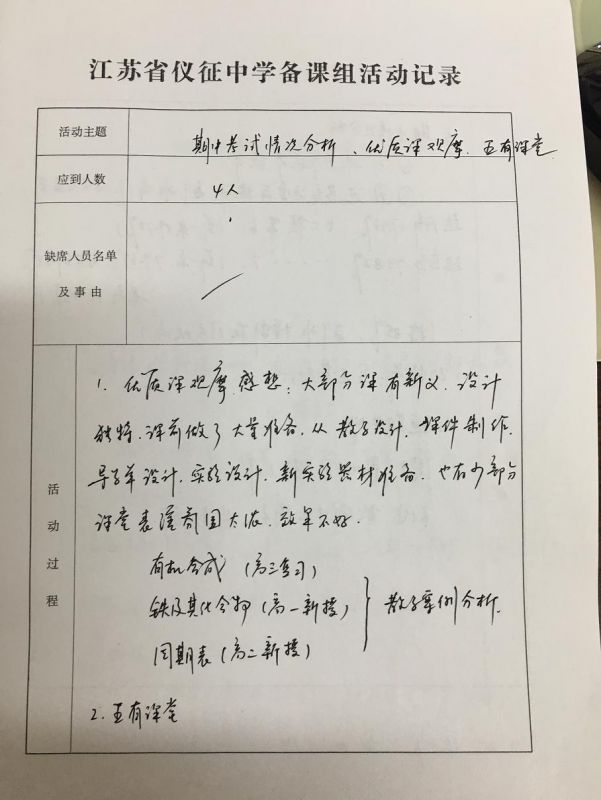 江苏省仪征中学备课组活动记录
活动主题
期中考试情况分析、优质课观摩、五有课堂
应到人数
4人
缺席人员名单
及事由
活动过程
1. 优质课观摩感想：大部分课有新义，设计
独特，课前做了大量准备，从教学设计，课件制作，
导学单设计，实验设计，新实验器材准备，也有少部分
课堂表演氛围太浓，效果不好.
有机合成（高三复习）
铁及其化合物（高一新授）
教学案例分析.
周期表（高二新授）
2. 五有课堂